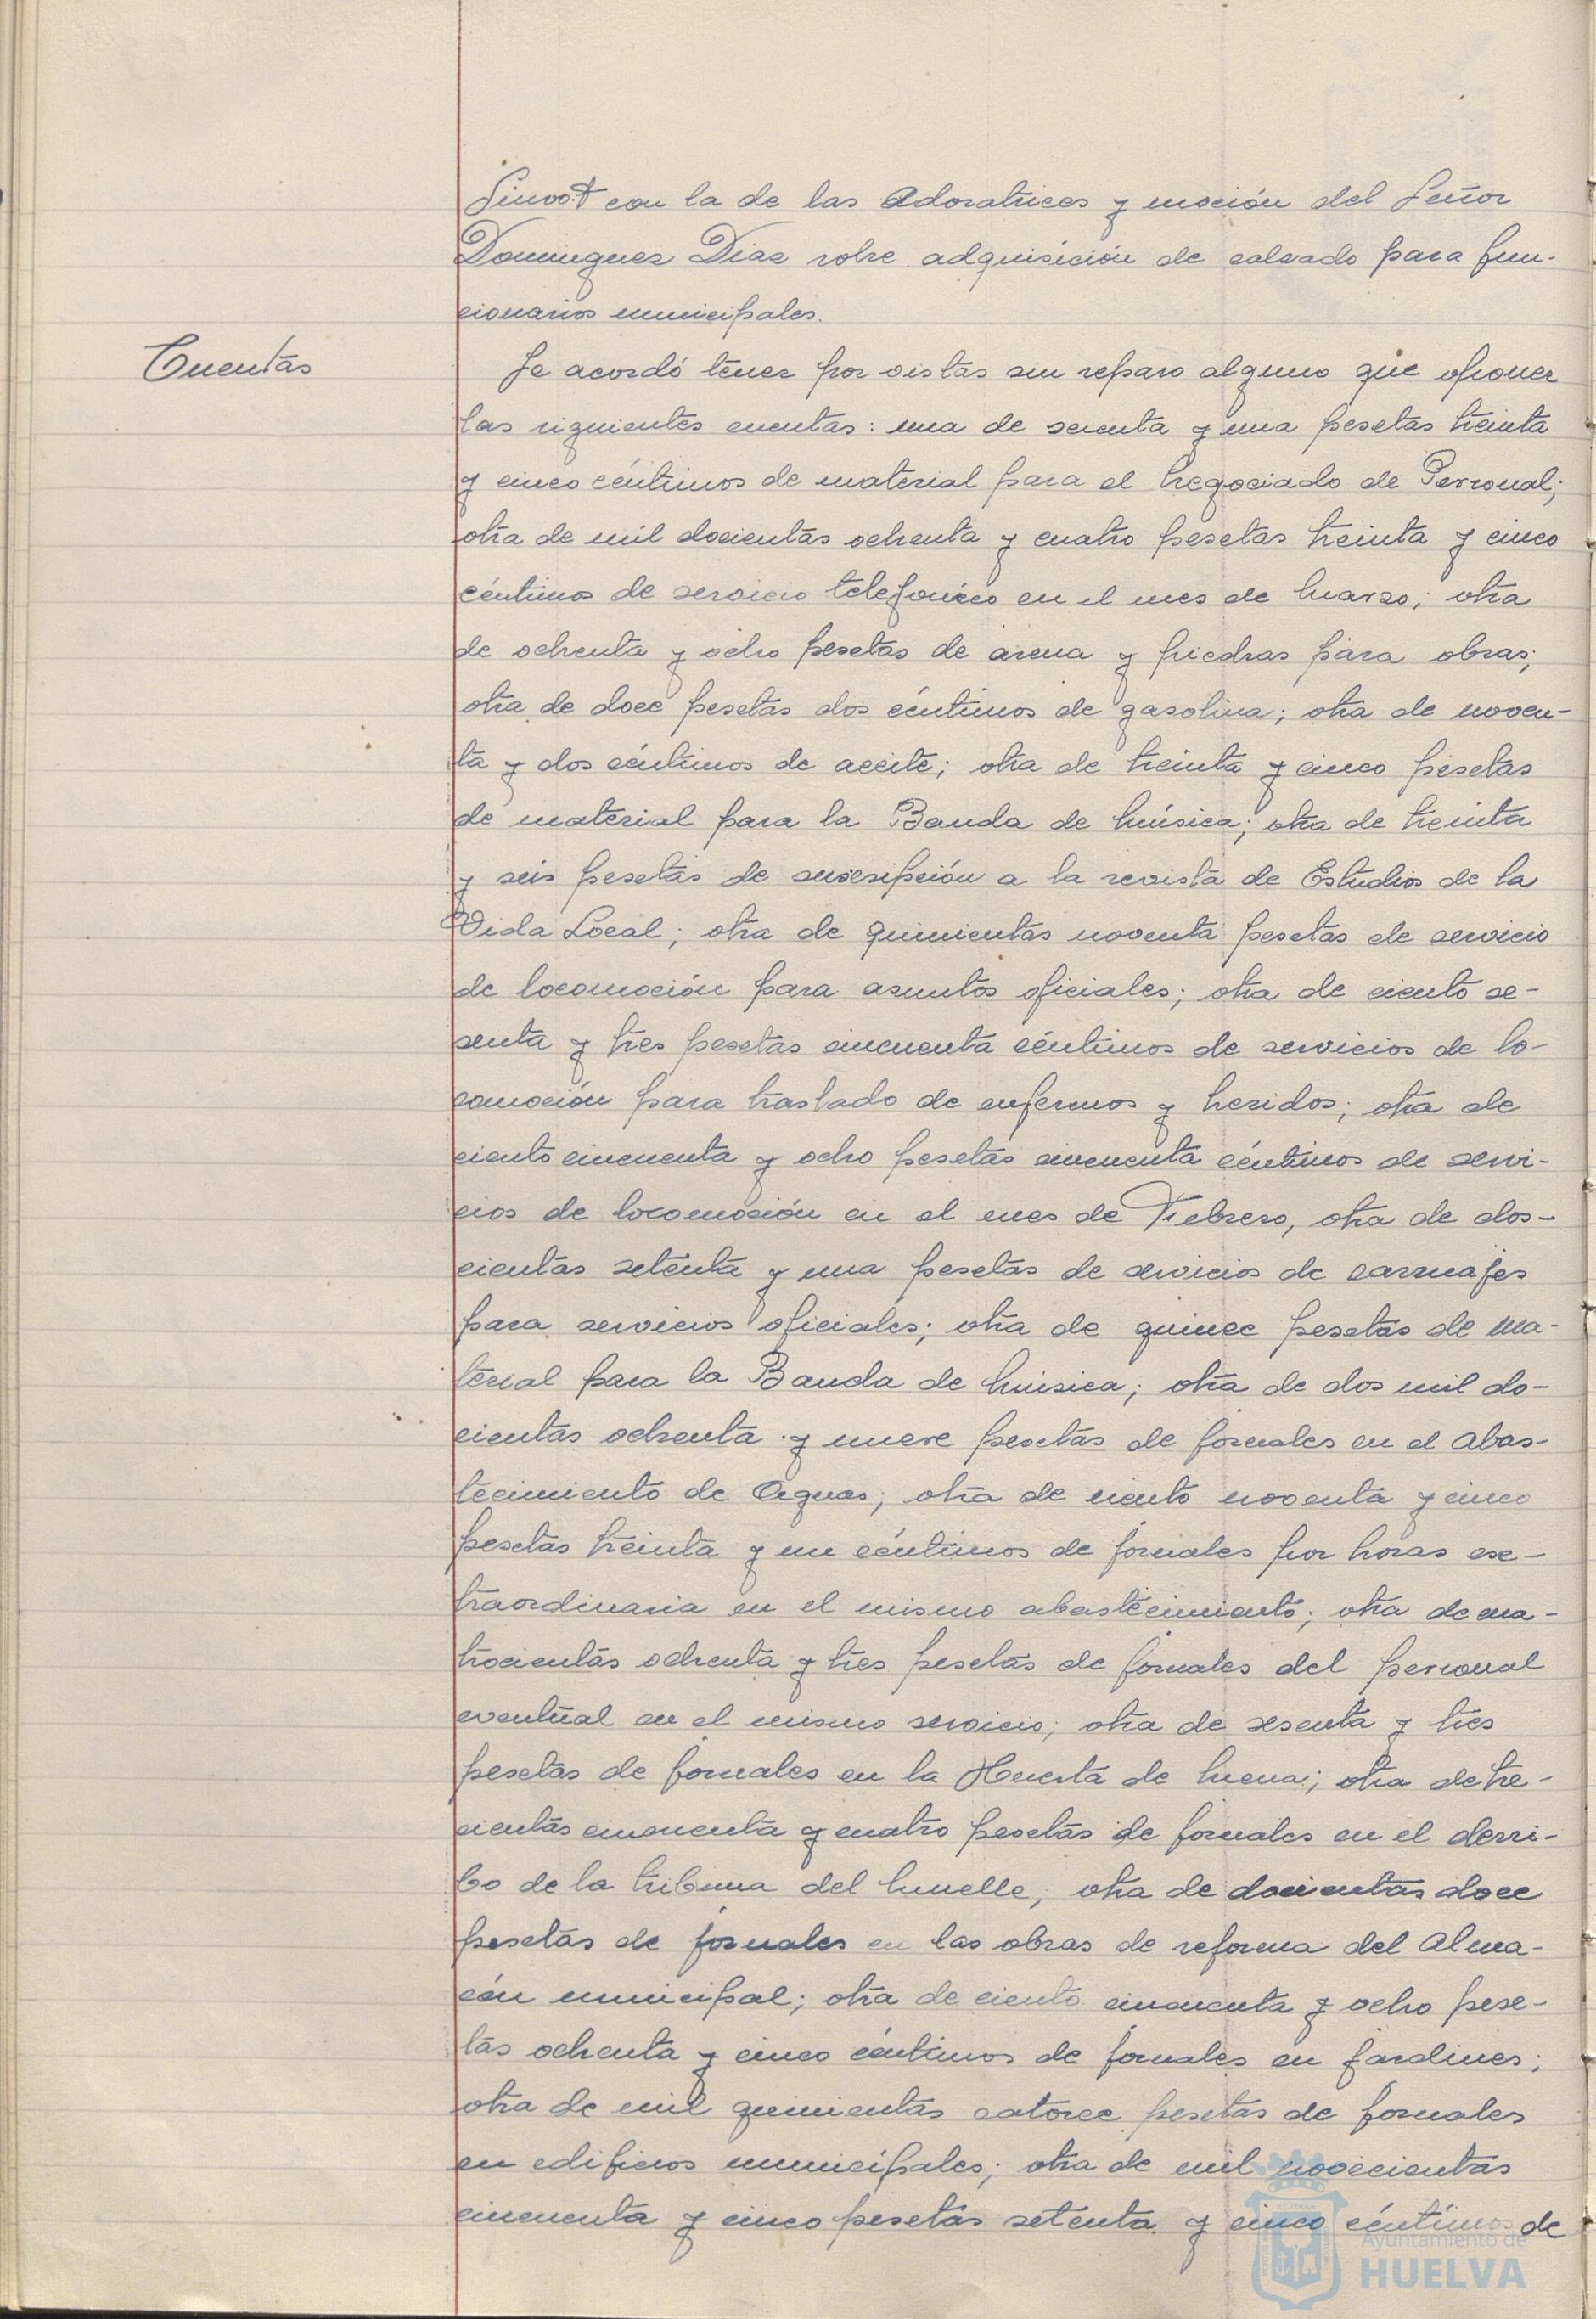 con la de las Adoratrices y moción del Señor
Dominguez Diaz sobre adquisición de calzado para fun-
cionarios municipales.
Cuentas
Se acordó tener por vistas sin reparo alguno que oponer
las siguientes cuentas: una de sesenta y una pesetas treinta
y cinco céntimos de material para el Negociado de Personal;
otra de mil docientas ochenta y cuatro pesetas treinta y cinco
céntimos de servicio telefonico en el mes de Marzo; otra
de ochenta y ocho pesetas de arena y piedras para obras;
otra de doce pesetas dos céntimos de gasolina; otra de noven-
ta y dos céntimos de aceite; otra de treinta y cinco pesetas
de material para la Banda de Música; otra de treinta
y seis pesetas de suscripción a la revista de Estudios de la
Vida Local; otra de quinientas noventa pesetas de servicio
de locomoción para asuntos oficiales; otra de ciento se-
senta y tres pesetas cincuenta céntimos de servicios de lo-
comoción para traslado de enfermos y heridos; otra de
ciento cincuenta y ocho pesetas cincuenta céntimos de servi-
cios de locomoción en el mes de Febrero, otra de dos-
cientas setenta y una pesetas de servicios de carruajes
para servicios oficiales; otra de quince pesetas de ma-
terial para la Banda de Música; otra de dos mil do-
cientas ochenta y nueve pesetas de jornales en el abas-
tecimiento de Aguas; otra de ciento noventa y cinco
pesetas treinta y un céntimos de jornales por horas ex-
traordinaria en el mismo abastecimiento; otra de cua-
trocientas ochenta y tres pesetas de jornales del personal
eventual en el mismo servicio; otra de sesenta y tres
pesetas de jornales en la Huerta de Mena; otra de tre-
cientas cincuenta y cuatro pesetas de jornales en el derri-
bo de la tribuna del Muelle, otra de docientas doce
pesetas de jornales en las obras de reforma del Alma-
cén municipal; otra de ciento cincuenta y ocho pese-
tas ochenta y cinco céntimos de jornales en jardines;
otra de mil quinientas catorce pesetas de jornales
en edificios municipales; otra de mil novecientas
cincuenta y cinco pesetas setenta y cinco céntimos de
Ayuntamiento de
HUELVA